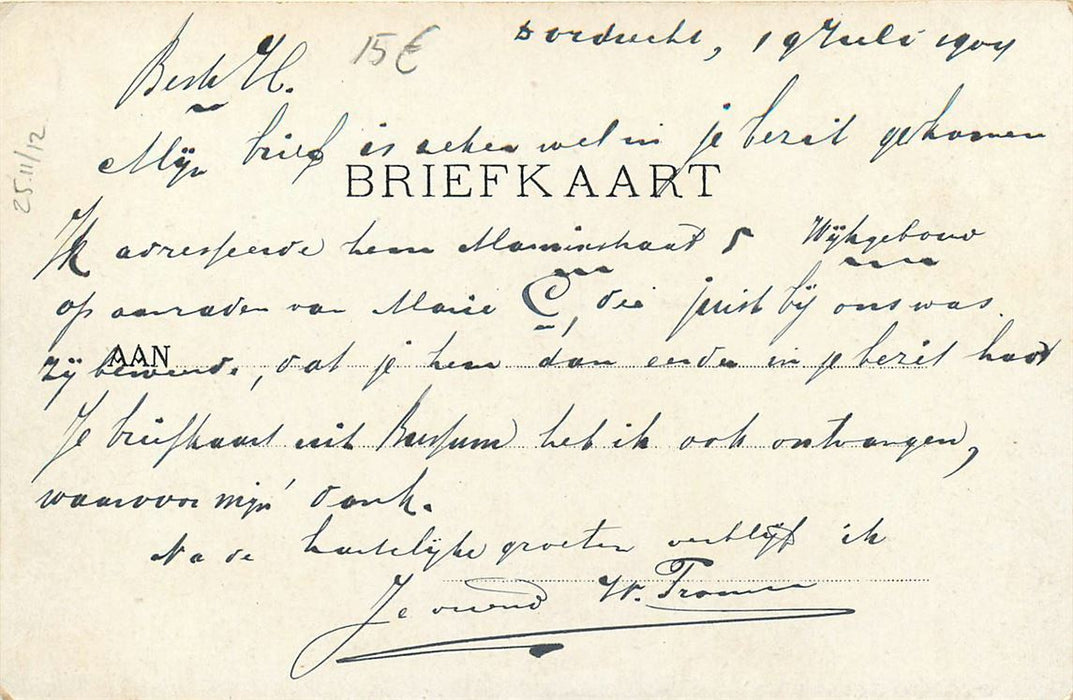 Dordrecht, 19 Juli 1904
15 €
Beste H.
25.11/12
Mijn brief is zeker wel in je bezit gekomen
BRIEFKAART
Ik adresseerde hem 5 Wijkgebouw
op aanraden van Marie C, die juist bij ons was.
AAN
zij beweerde, dat je hem dan eerder in je bezit hadt
Je briefkaart uit Bussum heb ik ook ontvangen,
waarvoor mijn dank.
Na de hartelijke groeten verblijf ik
Je vriend W. Tromm